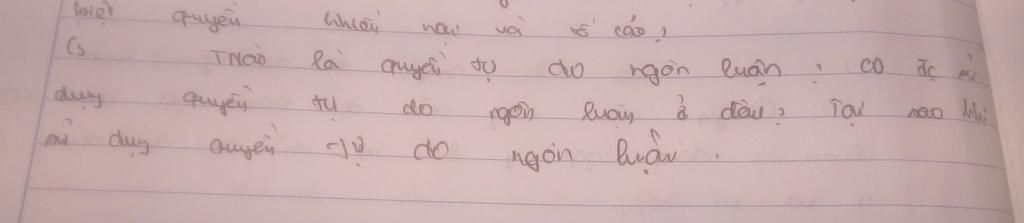 biệt quyền khiếu nại và tố cáo,
C5 TNào là quyền tự do ngôn luận, CD đc sử
dụng quyền tự do ngôn luận ở đâu, Tại sao khi
sử dụng quyền tự do ngôn luận.